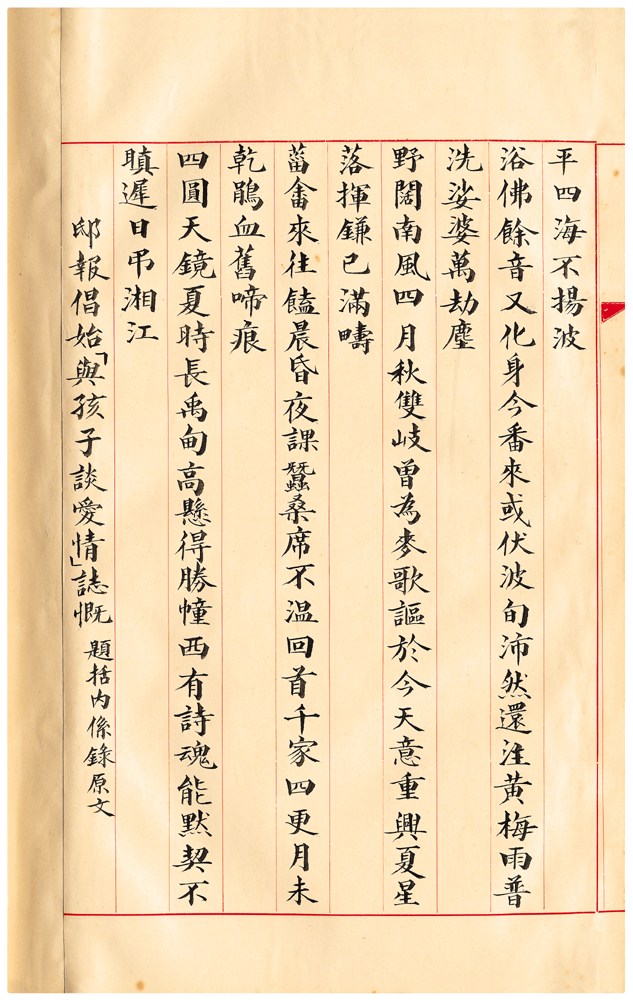 平四海不揚波
浴佛餘音又化身今番來或伏波旬沛然還注黃梅雨普
洗娑婆萬劫塵
野闊南風四月秋雙岐曾為麥歌謳於今天意重興夏星
落揮鎌已滿疇
菑畬來往饁晨昏夜課蠶桑席不溫回首千家四更月未
乾鵑血舊啼痕
四圓天鏡夏時長禹甸高懸得勝幢西有詩魂能默契不
瞋遲日弔湘江
邸報倡始「與孩子談愛情」誌慨 題括內係錄原文